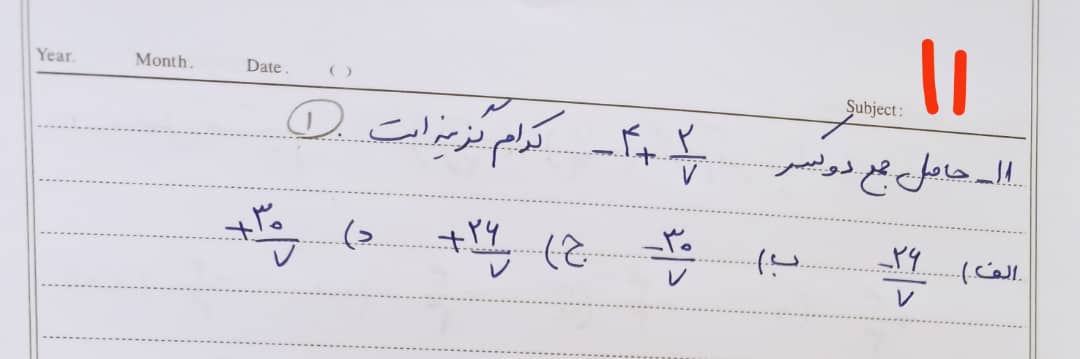 Year. Month. Date. ( )
Subject: ۱۱
۱۱_ حاصل جمع دو کسر -۴ + ۲/۷ کدام گزینه است. ۱
الف) -۲۶/۷ ب) -۳۰/۷ ج) +۲۶/۷ د) +۳۰/۷